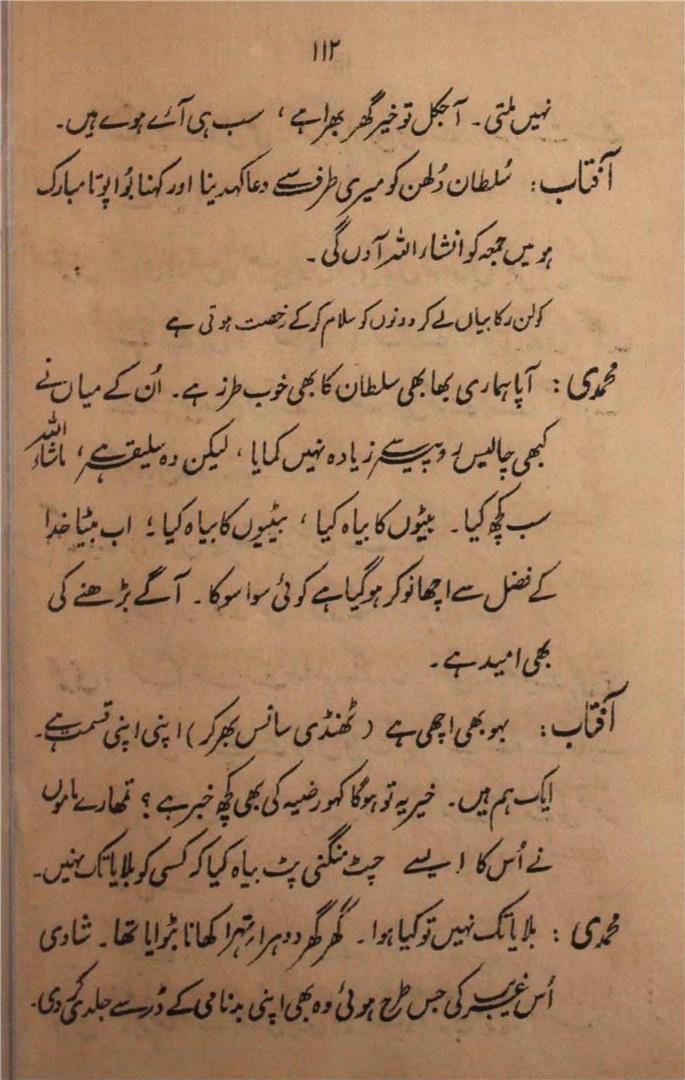 ۱۱۲
نہیں ملتی۔ آجکل تو خیر گھر بھرا ہے، سب ہی آئے ہوے ہیں۔
آفتاب: سُلطان دُلھن کو میری طرف سے دعا کہدینا اور کہنا بُوا پوتا مبارک
ہو میں جمعہ کو انشاء اللہ آوں گی۔
کولن رکابیاں لے کر دونوں کو سلام کر کے رخصت ہوتی ہے
محمدی: آپا ہماری بھابھی سلطان کا بھی خوب طرز ہے۔ اُن کے میاں نے
کبھی چالیس روپیہ سے زیادہ نہیں کمایا، لیکن وہ سلیقہ ہے، ماشاء اللہ
سب کچھ کیا۔ بیٹوں کا بیاہ کیا، بیٹیوں کا بیاہ کیا؛ اب بیٹا خدا
کے فضل سے اچھا نوکر ہو گیا ہے کوئی سوا سو کا۔ آگے بڑھنے کی
بھی امید ہے۔
آفتاب: بہو بھی اچھی ہے (ٹھنڈی سانس بھر کر) اپنی اپنی قسمت ہے۔
ایک ہم ہیں۔ خیر یہ تو ہو گا کہو رضیہ کی بھی کچھ خبر ہے؟ تمھارے ماموں
نے اُس کا ایسے چٹ منگنی پٹ بیاہ کیا کہ کسی کو بلایا تک نہیں۔
محمدی: بلایا تک نہیں تو کیا ہوا۔ گھر گھر دوہرا تہرا کھانا بٹوایا تھا۔ شادی
اُس غریب کی جس طرح ہوئی وہ بھی اپنی بدنامی کے ڈر سے جلدی کر دی۔